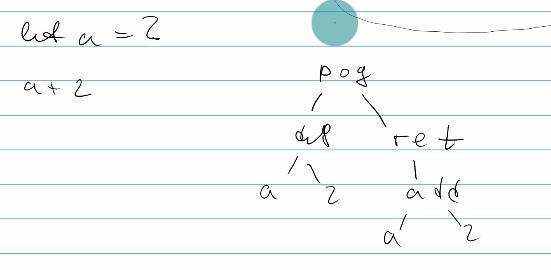 let a = 2
a + 2
pog
def
ret
a 2
add
a 2